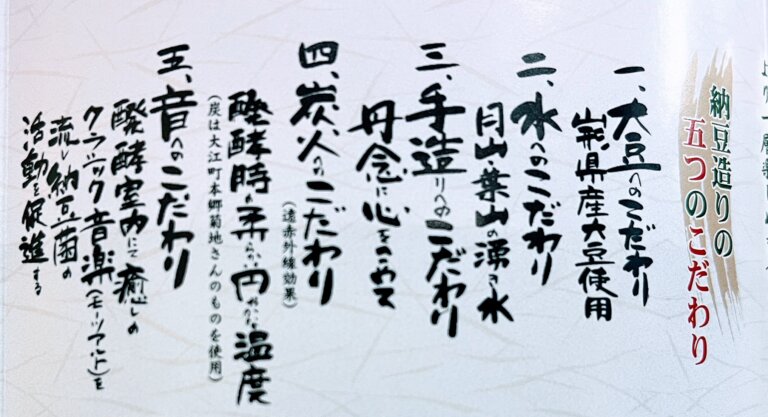 納豆造りの
五つのこだわり
一、大豆へのこだわり
山形県産大豆使用
二、水へのこだわり
月山・葉山の湧き水
三、手造りへのこだわり
丹念に心をこめて
四、炭火へのこだわり
(遠赤外線効果)
醗酵時の柔らかい円やかな温度
(炭は大江町本郷菊地さんのものを使用)
五、音へのこだわり
醗酵室内にて癒しの
クラシック音楽(モーツアルト)を
流し納豆菌の
活動を促進する